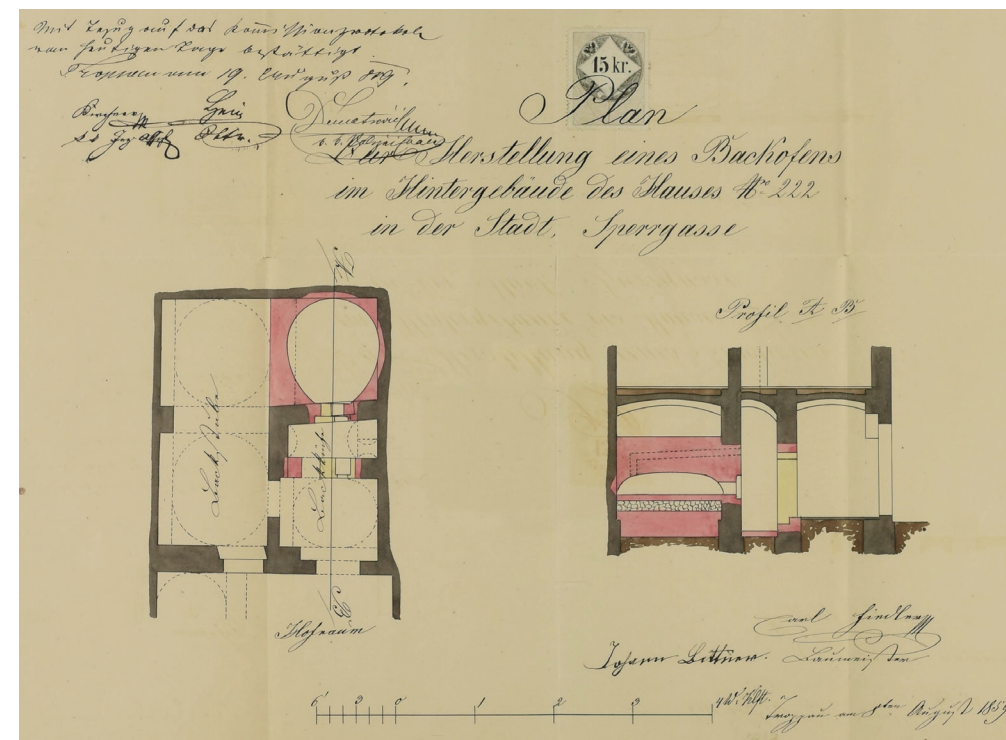 Mit Bezug auf das Kommissionsprotokoll
vom heutigen Tage bestättigt
Troppau am 19. August 859.
15 kr.
Plan
zur Herstellung eines Backofens
im Hintergebäude des Hauses Nro 222
in der Stadt, Sperrgasse
A
Profil A B
B
Hofraum
Johann Bittner.
Carl Fiedler
Baumeister
6' 3 0 1 2 3 4 W. Klft.
Troppau am 8ten August 1859